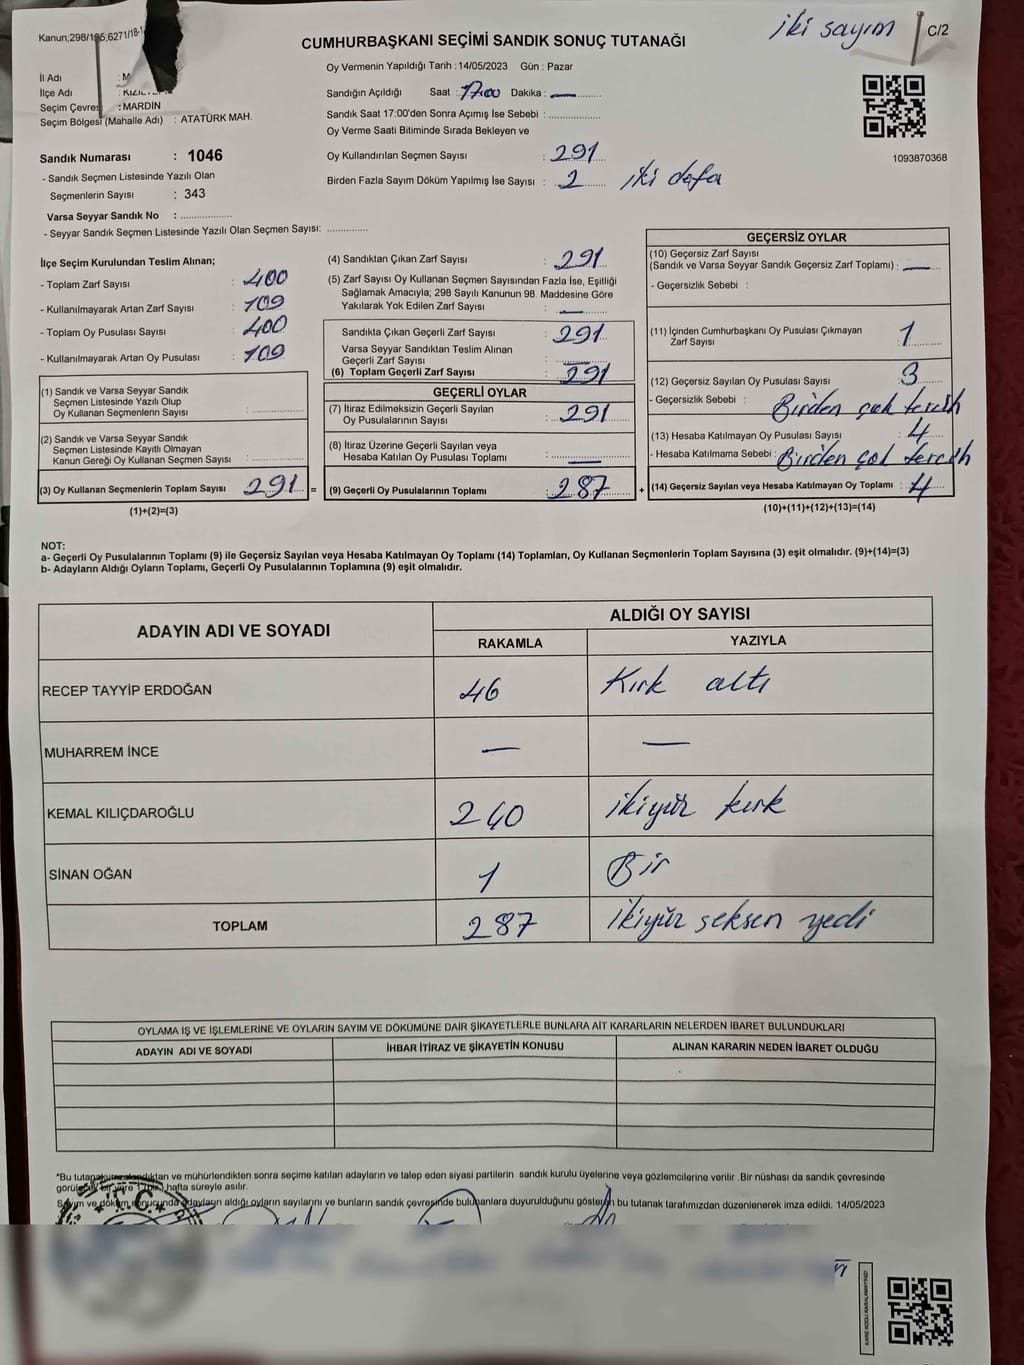 iki sayım
C/2
CUMHURBAŞKANI SEÇİMİ SANDIK SONUÇ TUTANAĞI
Oy Vermenin Yapıldığı Tarih :14/05/2023 Gün : Pazar
İl Adı : M
İlçe Adı
Seçim Çevresi : MARDİN
Seçim Bölgesi (Mahalle Adı) : ATATÜRK MAH.
Sandığın Açıldığı Saat : 17:00 Dakika : —
Sandık Saat 17:00'den Sonra Açımış İse Sebebi :
Oy Verme Saati Bitiminde Sırada Bekleyen ve
Oy Kullandırılan Seçmen Sayısı : 291
Birden Fazla Sayım Döküm Yapılmış İse Sayısı : 2 iki defa
1093870368
Sandık Numarası : 1046
- Sandık Seçmen Listesinde Yazılı Olan
Seçmenlerin Sayısı : 343
Varsa Seyyar Sandık No :
- Seyyar Sandık Seçmen Listesinde Yazılı Olan Seçmen Sayısı:
İlçe Seçim Kurulundan Teslim Alınan;
- Toplam Zarf Sayısı : 400
- Kullanılmayarak Artan Zarf Sayısı : 109
- Toplam Oy Pusulası Sayısı : 400
- Kullanılmayarak Artan Oy Pusulası : 109
(1) Sandık ve Varsa Seyyar Sandık
Seçmen Listesinde Yazılı Olup
Oy Kullanan Seçmenlerin Sayısı :
(2) Sandık ve Varsa Seyyar Sandık
Seçmen Listesinde Kayıtlı Olmayan
Kanun Gereği Oy Kullanan Seçmen Sayısı :
(3) Oy Kullanan Seçmenlerin Toplam Sayısı 291 =
(1)+(2)=(3)
(4) Sandıktan Çıkan Zarf Sayısı : 291
(5) Zarf Sayısı Oy Kullanan Seçmen Sayısından Fazla İse, Eşitliği
Sağlamak Amacıyla; 298 Sayılı Kanunun 98. Maddesine Göre
Yakılarak Yok Edilen Zarf Sayısı : —
Sandıkta Çıkan Geçerli Zarf Sayısı : 291
Varsa Seyyar Sandıktan Teslim Alınan
Geçerli Zarf Sayısı :
(6) Toplam Geçerli Zarf Sayısı : 291
GEÇERLİ OYLAR
(7) İtiraz Edilmeksizin Geçerli Sayılan
Oy Pusulalarının Sayısı : 291
(8) İtiraz Üzerine Geçerli Sayılan veya
Hesaba Katılan Oy Pusulası Toplamı : —
(9) Geçerli Oy Pusulalarının Toplamı : 287 +
GEÇERSİZ OYLAR
(10) Geçersiz Zarf Sayısı
(Sandık ve Varsa Seyyar Sandık Geçersiz Zarf Toplamı) : —
- Geçersizlik Sebebi :
(11) İçinden Cumhurbaşkanı Oy Pusulası Çıkmayan
Zarf Sayısı : 1
(12) Geçersiz Sayılan Oy Pusulası Sayısı : 3
- Geçersizlik Sebebi : Birden çok tercih
(13) Hesaba Katılmayan Oy Pusulası Sayısı : 4
- Hesaba Katılmama Sebebi : Birden çok tercih
(14) Geçersiz Sayılan veya Hesaba Katılmayan Oy Toplamı : 4
(10)+(11)+(12)+(13)=(14)
NOT:
a- Geçerli Oy Pusulalarının Toplamı (9) ile Geçersiz Sayılan veya Hesaba Katılmayan Oy Toplamı (14) Toplamları, Oy Kullanan Seçmenlerin Toplam Sayısına (3) eşit olmalıdır. (9)+(14)=(3)
b- Adayların Aldığı Oyların Toplamı, Geçerli Oy Pusulalarının Toplamına (9) eşit olmalıdır.
ADAYIN ADI VE SOYADI
ALDIĞI OY SAYISI
RAKAMLA YAZIYLA
RECEP TAYYİP ERDOĞAN 46 Kırk altı
MUHARREM İNCE — —
KEMAL KILIÇDAROĞLU 240 ikiyüz kırk
SİNAN OĞAN 1 Bir
TOPLAM 287 ikiyüz seksen yedi
OYLAMA İŞ VE İŞLEMLERİNE VE OYLARIN SAYIM VE DÖKÜMÜNE DAİR ŞİKAYETLERLE BUNLARA AİT KARARLARIN NELERDEN İBARET BULUNDUKLARI
ADAYIN ADI VE SOYADI İHBAR İTİRAZ VE ŞİKAYETİN KONUSU ALINAN KARARIN NEDEN İBARET OLDUĞU
ve mühürlendikten sonra seçime katılan adayların ve talep eden siyasi partilerin sandık kurulu üyelerine veya gözlemcilerine verilir .Bir nüshası da sandık çevresinde
hafta süreyle asılır.
aldığı oyların sayılarını ve bunların sandık çevresinde bulunanlara duyurulduğunu gösteren bu tutanak tarafımızdan düzenlenerek imza edildi. 14/05/2023
T.C.